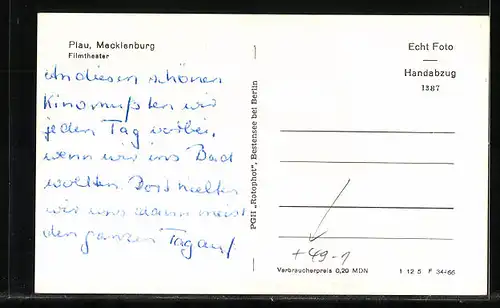 Plau, Mecklenburg
Filmtheater
An diesen schönen
Kino mußten wir
jeden Tag vorbei,
wenn wir ins Bad
wollten. Dort hielten
wir uns dann meist
den ganzen Tag auf.
PGH „Rotophot", Bestensee bei Berlin
Echt Foto
Handabzug
1387
+49-1
Verbraucherpreis 0,20 MDN
1 12 5 F 34/66